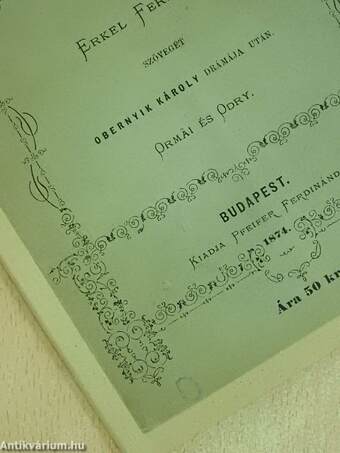 ERKEL FER
SZÖVEGÉT
OBERNYIK KÁROLY DRÁMÁJA UTÁN.
ORMAI ÉS ODRY.
BUDAPEST.
KIADJA PFEIFER FERDINÁND
1874.
Ára 50 kr
Antikvárium.hu